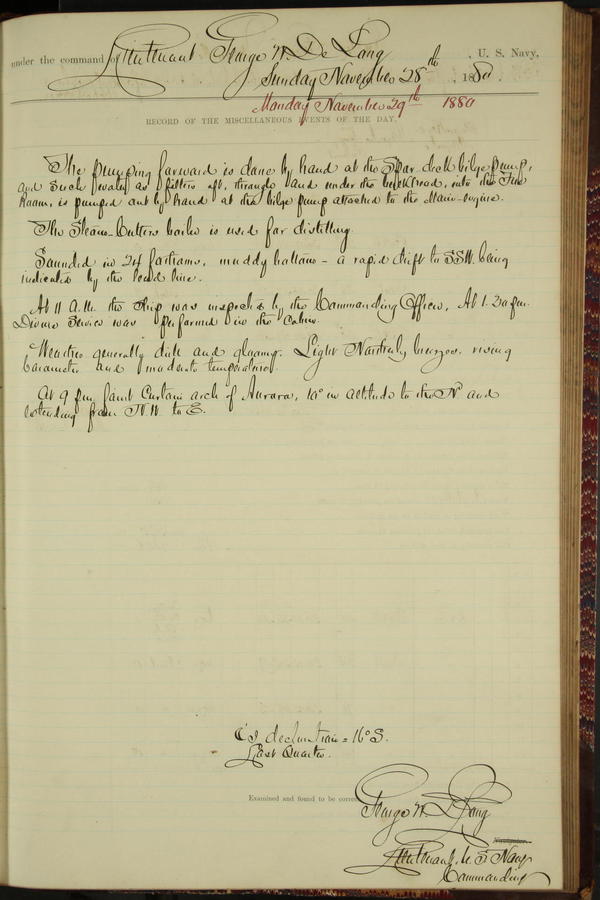 under the command of Lieutenant George W. De Long, U. S. Navy,
Sunday November 28th, 1880.
Monday November 29th 1880
RECORD OF THE MISCELLANEOUS EVENTS OF THE DAY.
The pumping forward is done by hand at the Spar deck bilge pump,
and such water as filters aft, through and under the bulkhead, into the Fire
Room, is pumped out by hand at the bilge pump attached to the Main-engine.
The Steam-Cutters boiler is used for distilling
Sounded in 24 fathoms, muddy bottom - a rapid drift to SSW. being
indicated by the lead line.
At 11 A.M. the ship was inspected by the Commanding Officer. At 1.30 pm.
Divine Service was performed in the Cabin.
Weather generally dull and gloomy. Light Northerly breezes, rising
barometer and moderate temperature.
At 9 pm faint Curtain arch of Aurora, 10° in altitude to the Nd and
extending from N.W. to E.
☾'s declination = 16° S.
Last Quarter.
Examined and found to be correct.
George W. De Long
Navigator.
Lieutenant U S Navy
Commanding